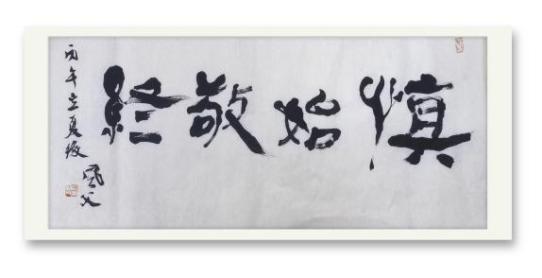 慎始敬終
丙午立夏後
風父